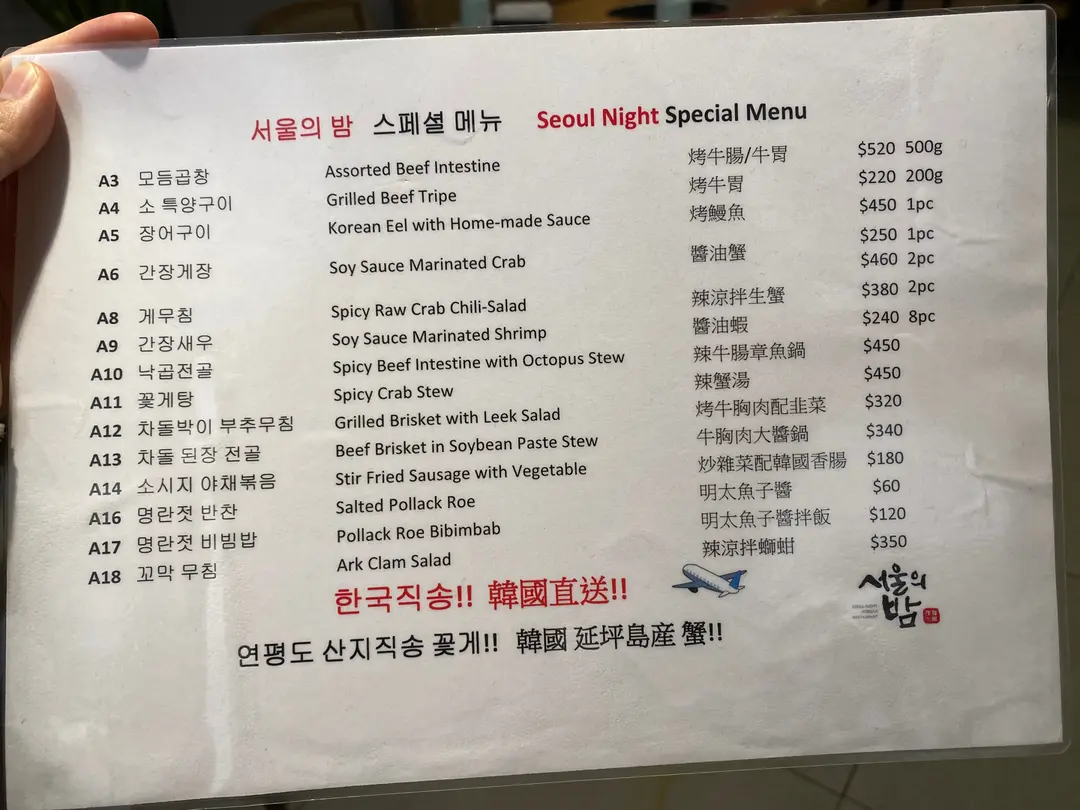 서울의 밤 스페셜 메뉴 Seoul Night Special Menu
A3 모듬곱창 Assorted Beef Intestine 烤牛腸/牛胃 $520 500g
A4 소 특양구이 Grilled Beef Tripe 烤牛胃 $220 200g
A5 장어구이 Korean Eel with Home-made Sauce 烤鰻魚 $450 1pc
$250 1pc
A6 간장게장 Soy Sauce Marinated Crab 醬油蟹 $460 2pc
A8 게무침 Spicy Raw Crab Chili-Salad 辣涼拌生蟹 $380 2pc
A9 간장새우 Soy Sauce Marinated Shrimp 醬油蝦 $240 8pc
A10 낙곱전골 Spicy Beef Intestine with Octopus Stew 辣牛腸章魚鍋 $450
A11 꽃게탕 Spicy Crab Stew 辣蟹湯 $450
A12 차돌박이 부추무침 Grilled Brisket with Leek Salad 烤牛胸肉配韭菜 $320
A13 차돌 된장 전골 Beef Brisket in Soybean Paste Stew 牛胸肉大醬鍋 $340
A14 소시지 야채볶음 Stir Fried Sausage with Vegetable 炒雜菜配韓國香腸 $180
A16 명란젓 반찬 Salted Pollack Roe 明太魚子醬 $60
A17 명란젓 비빔밥 Pollack Roe Bibimbab 明太魚子醬拌飯 $120
A18 꼬막 무침 Ark Clam Salad 辣涼拌螄蚶 $350
한국직송!! 韓國直送!!
연평도 산지직송 꽃게!! 韓國 延坪島産 蟹!!
서울의
밤